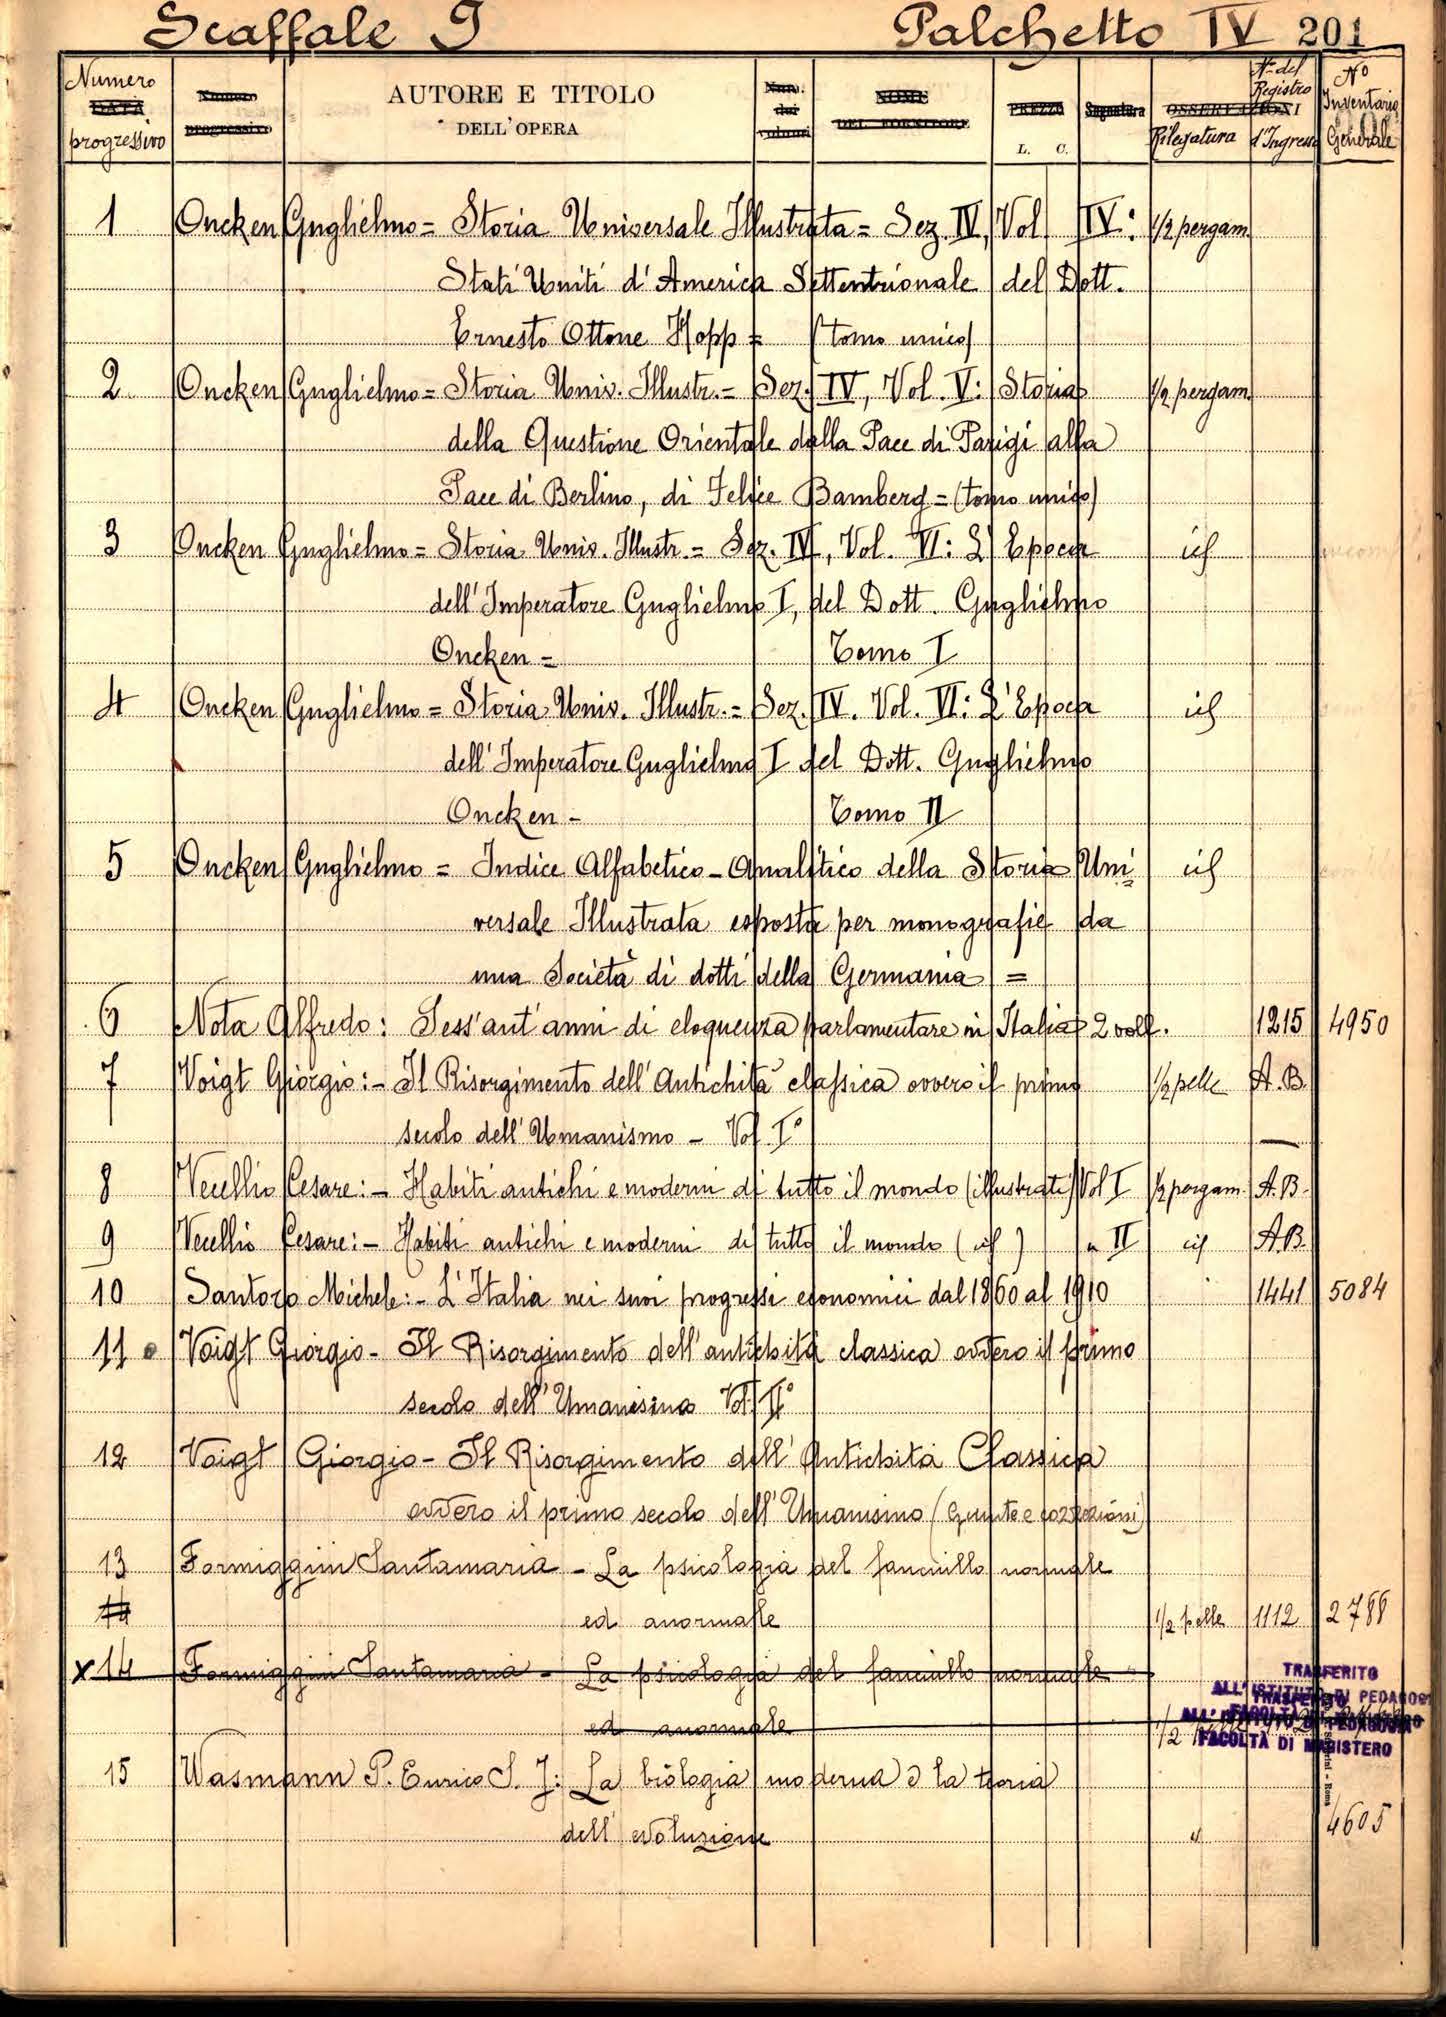 Scaffale I Palchetto IV 201
Numero progressivo AUTORE E TITOLO DELL'OPERA PREZZO L. C. OSSERVAZIONI Rilegatura N.° del Registro d'Ingresso N° Inventario Generale
1 Oncken Guglielmo = Storia Universale Illustrata = Sez. IV, Vol. IV: 1/2 pergam.
Stati Uniti d'America Settentrionale del Dott.
Ernesto Ottone Hopp = (tomo unico)
2 Oncken Guglielmo = Storia Univ. Illustr. = Sez. IV, Vol. V: Storia 1/2 pergam.
della Questione Orientale dalla Pace di Parigi alla
Pace di Berlino, di Felice Bamberg = (tomo unico)
3 Oncken Guglielmo = Storia Univ. Illustr. = Sez. IV, Vol. VI: L'Epoca id
dell'Imperatore Guglielmo I, del Dott. Guglielmo
Oncken = Tomo I
4 Oncken Guglielmo = Storia Univ. Illustr. = Sez. IV. Vol. VI: L'Epoca id
dell'Imperatore Guglielmo I del Dott. Guglielmo
Oncken - Tomo II
5 Oncken Guglielmo = Indice Alfabetico - Analitico della Storia Uni= id
versale Illustrata esposta per monografie da
una Società di dotti della Germania =
6 Nota Alfredo: Sess'ant'anni di eloquenza parlamentare in Italia 2 voll. 1215 4950
7 Voigt Giorgio: - Il Risorgimento dell'Antichità classica ovvero il primo 1/2 pelle A.B.
secolo dell'Umanismo - Vol I°
8 Vecellio Cesare: - Habiti antichi e moderni di tutto il mondo (illustrati) Vol I 1/2 pergam. A.B.
9 Vecellio Cesare: - Habiti antichi e moderni di tutto il mondo (id) " II id A.B.
10 Santoro Michele: - L'Italia nei suoi progressi economici dal 1860 al 1910 1441 5084
11 Voigt Giorgio - Il Risorgimento dell'antichità classica ovvero il primo
secolo dell'Umanesimo Vol. II°
12 Voigt Giorgio - Il Risorgimento dell'Antichità Classica
ovvero il primo secolo dell'Umanismo (Giunte e correzioni)
13 Formiggini Santamaria - La psicologia del fanciullo normale
14 ed anormale 1/2 pelle 1112 2788
x 14 Formiggini Santamaria - La psicologia del fanciullo normale
ed anormale 1/2
TRASFERITO
ALL'ISTITUTO DI PEDAGOGIA
TRASFERITO
ALL'ISTITUTO DI PEDAGOGIA
FACOLTÀ DI MAGISTERO
15 Wasmann P. Enrico S. J: La biologia moderna e la teoria
dell'evoluzione 4605